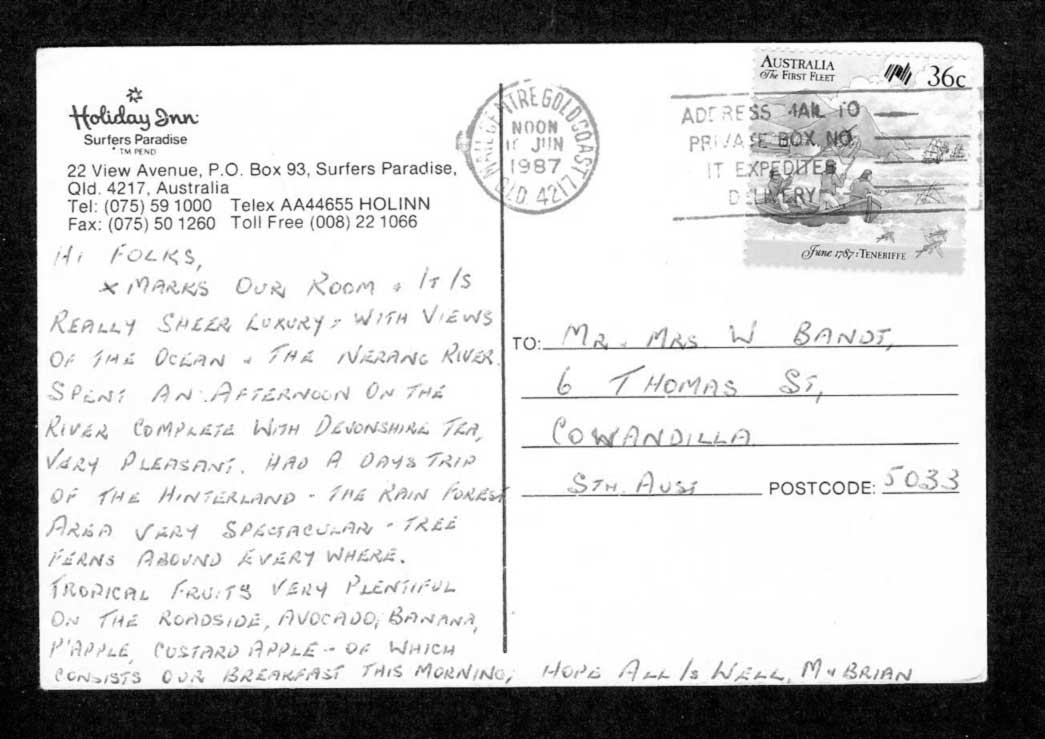 Holiday Inn
Surfers Paradise
* TM PEND
22 View Avenue, P.O. Box 93, Surfers Paradise,
Qld. 4217, Australia
Tel: (075) 59 1000 Telex AA44655 HOLINN
Fax: (075) 50 1260 Toll Free (008) 22 1066
HI FOLKS,
X MARKS OUR ROOM & IT IS
REALLY SHEER LUXURY, WITH VIEWS
OF THE OCEAN & THE NERANG RIVER.
SPENT AN AFTERNOON ON THE
RIVER COMPLETE WITH DEVONSHIRE TEA,
VERY PLEASANT. HAD A DAYS TRIP
OF THE HINTERLAND - THE RAIN FOREST
AREA VERY SPECTACULAR - TREE
FERNS ABOUND EVERY WHERE.
TROPICAL FRUITS VERY PLENTIFUL
ON THE ROADSIDE, AVOCADO, BANANA,
P'APPLE, CUSTARD APPLE -- OF WHICH
CONSISTS OUR BREAKFAST THIS MORNING, HOPE ALL IS WELL, M & BRIAN
MAIL CENTRE GOLD COAST
NOON
JUN
1987
QLD. 4217
ADDRESS MAIL TO
PRIVATE BOX NO.
IT EXPEDITES
DELIVERY
AUSTRALIA
The FIRST FLEET
36c
June 1787: TENERIFFE
TO: MR & MRS W BANDT,
6 THOMAS ST,
COWANDILLA
STH. AUST POSTCODE: 5033